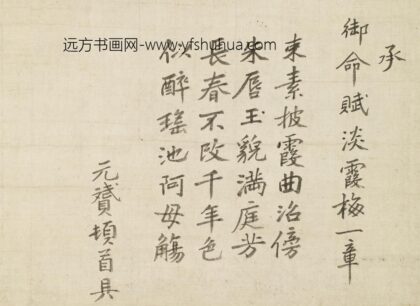 承
御命賦淡霞梅一章
束素披霞曲沼傍
朱唇玉貌滿庭芳
長春不改千年色
似醉瑤池阿母觴
元贇頓首具
远方书画网-www.yfshuhua.com